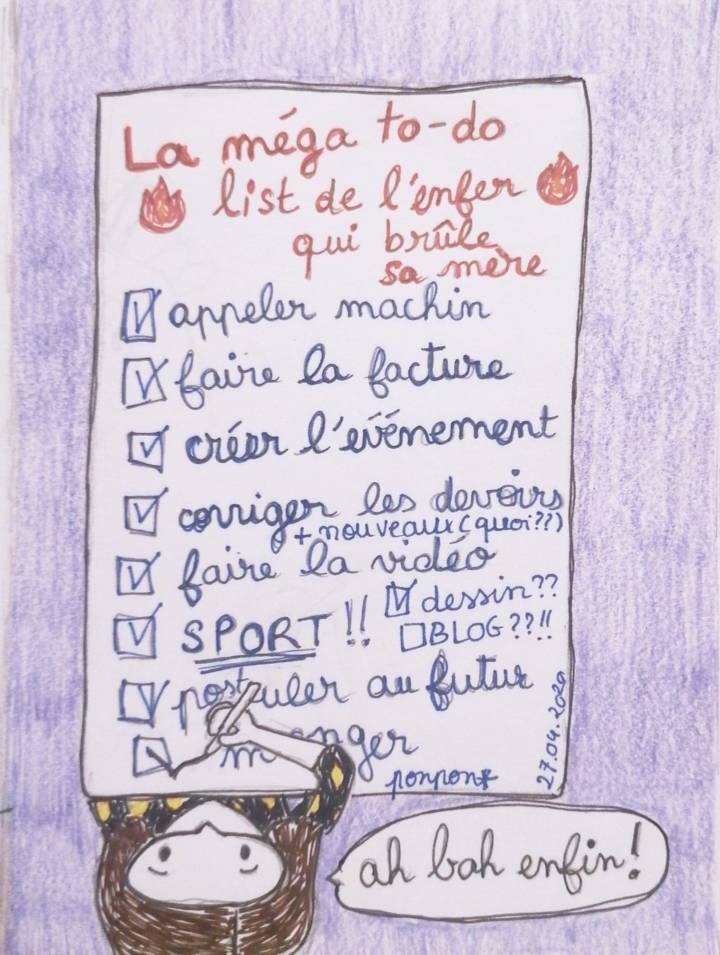 La méga to-do
list de l'enfer
qui brûle
sa mère
appeler machin
faire la facture
créer l'événement
corriger les devoirs
+ nouveaux (quoi??)
faire la vidéo
SPORT!! dessin??
BLOG??!!
postuler au futur
manger
ponpon*
27.04.2020
ah bah enfin!